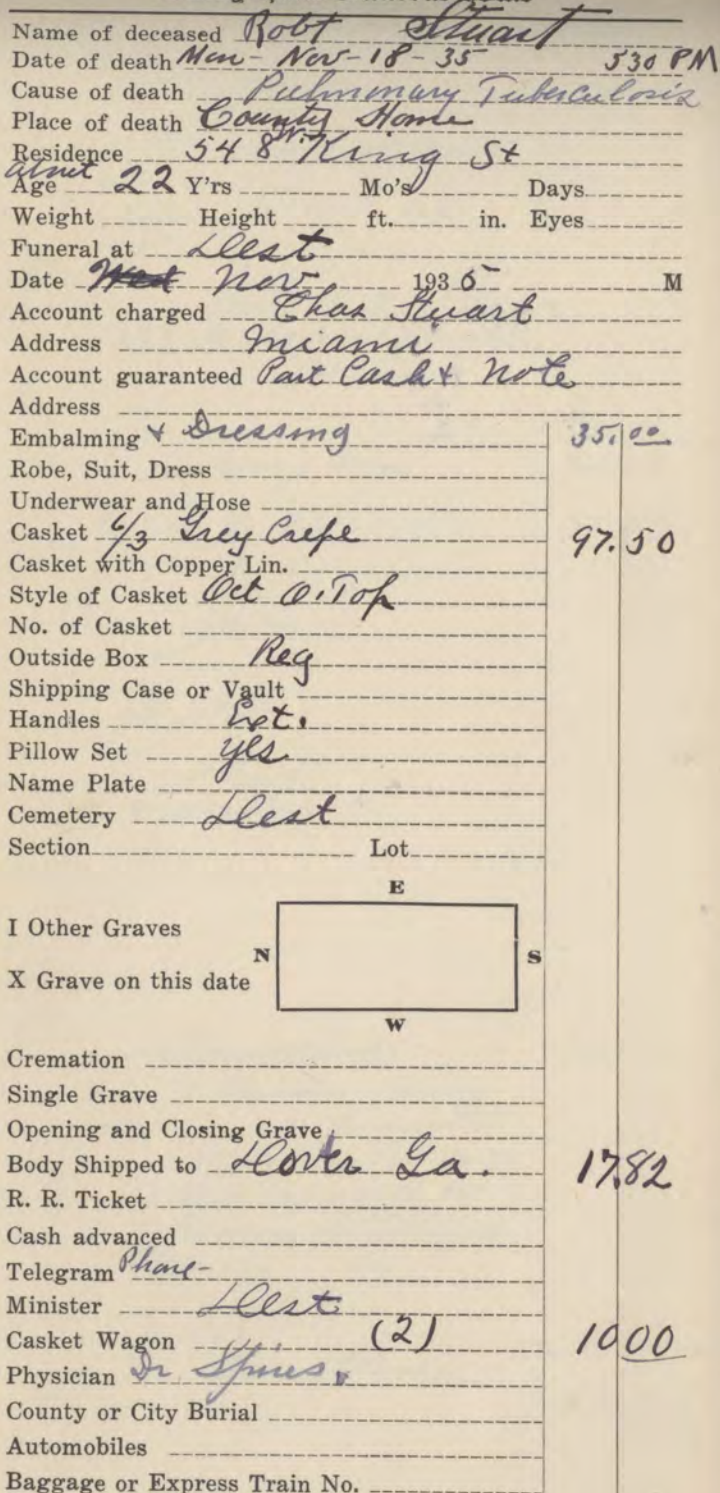 Name of deceased Robt Stuart
Date of death Mon - Nov - 18 - 35 530 PM
Cause of death Pulmonary Tuberculosis
Place of death County Home
Residence 548 King St
about
Age 22 Y'rs Mo's Days
Weight Height ft. in. Eyes
Funeral at Dest
Date Nov 1935 M
Account charged Chas Stuart
Address Miami
Account guaranteed Part Cash & Note
Address
Embalming & Dressing 35.00
Robe, Suit, Dress
Underwear and Hose
Casket 6/3 Grey Crepe 97.50
Casket with Copper Lin.
Style of Casket Oct O. Top
No. of Casket
Outside Box Reg
Shipping Case or Vault
Handles Ext.
Pillow Set yes
Name Plate
Cemetery Dest
Section Lot
E
I Other Graves
N S
X Grave on this date
W
Cremation
Single Grave
Opening and Closing Grave
Body Shipped to Dover Ga. 17.82
R. R. Ticket
Cash advanced
Telegram Phone -
Minister Dest
Casket Wagon (2) 10 00
Physician Dr
County or City Burial
Automobiles
Baggage or Express Train No.